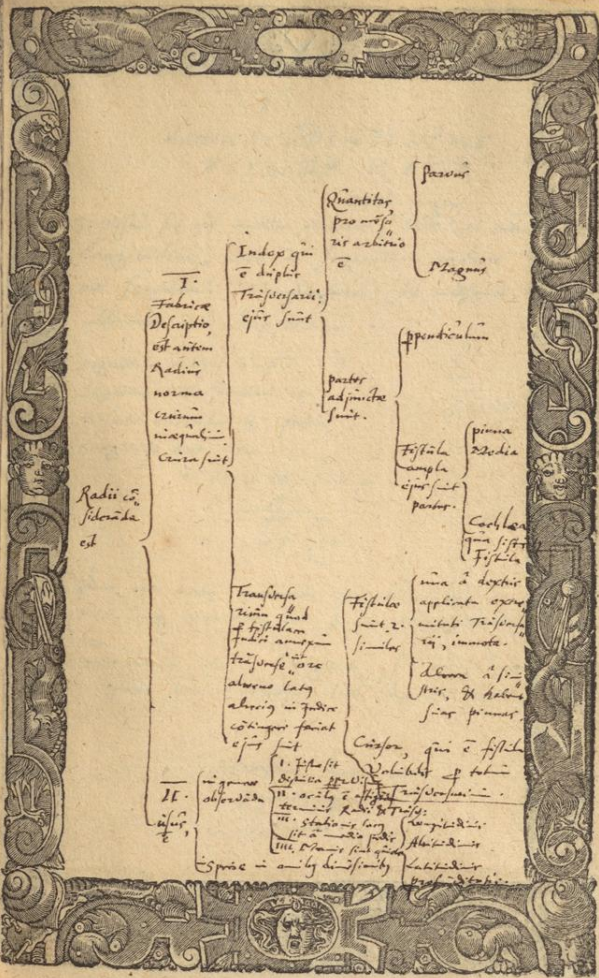 Radii cō=
siderāda
est
I.
Fabricæ
Descriptio,
est autem
Radius
norma
crurum
inæqualium.
Crura sunt
Index qui
ē duplus
Trāsversarii:
ejus sunt
Quantitas
pro mēso
ris arbitrio
ē
Parvus
Magnus
partes
adjunctæ
sunt.
ppendiculum
Fistula
ampla
ejus sunt
partes.
pinna
Media
Cochlea
qua sistitur
Fistula
Transversa
rium quod
p fistulam
Indici annexum
trāsversē
latus
alterius in Indice
cōtingere faciat
ejus sunt
Fistulæ
sunt 2.
similes
una à dextris
applicata extre
mitati Trāsversa
rii, immota.
Altera à sini
stris, & habent
suas pinnas.
Cursor, qui ē fistula
Volubilis p totum
Trāsversarium.
II.
Usus,
in genere
observāda
I.
II. oculus ē
terminis Radii & Trāsv:
III. Stationis
sit à medio pedis
IIII. Manus
in
dimēsionibus
Longitudinis
Altitudinis
Latitudinis
profunditatis.